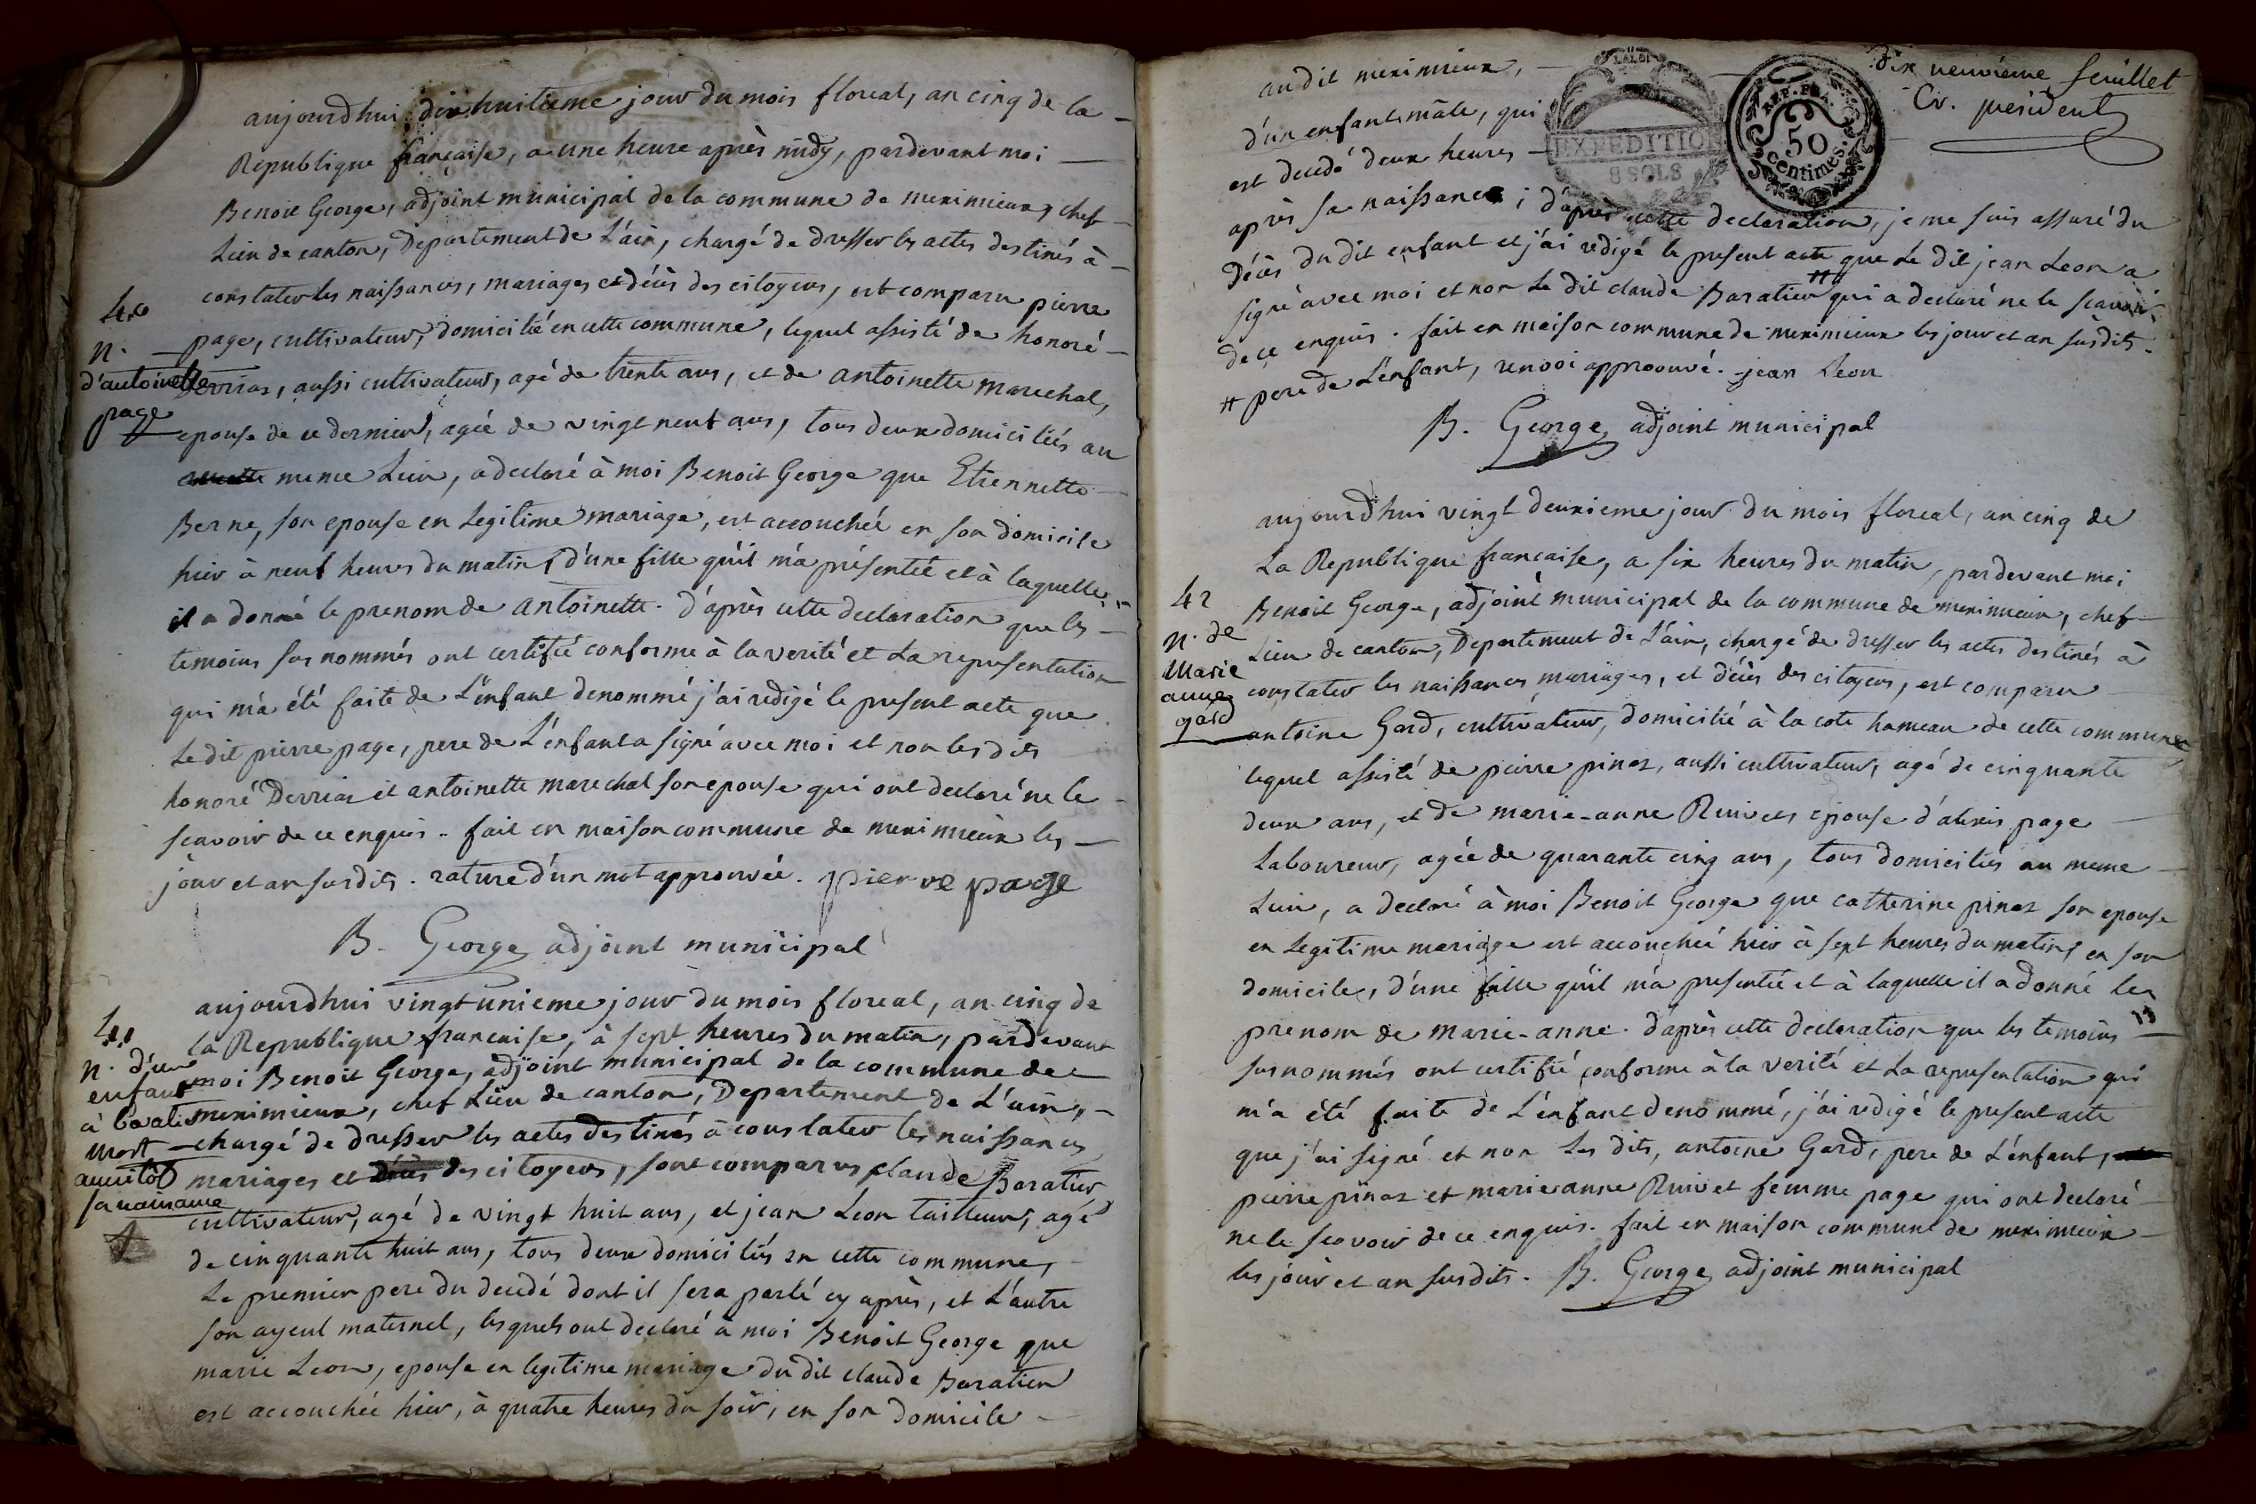 aujourdhui dix huitieme jour du mois floreal, an cinq de la
Republique française, a une heure après midy, pardevant moi
Benoit George, adjoint municipal de la commune de meximieux, chef
Lieu de canton, Departement de L'ain, chargé de dresser les actes destinés à
constater les naissances, mariages et décès des citoyens, est comparu pierre
40
page, cultivateur, domicilié en cette commune, lequel assisté de honoré
n.
d'antoinette
page
Derrias, aussi cultivateur, agé de trente ans, et de antoinette marechal,
epouse de ce dernier, agée de vingt neuf ans, tous deux domiciliés au
meme Lieu, a declaré à moi Benoit George que Etiennette
Berne, son epouse en Legitime mariage, est accouchée en son domicile
hier à neuf heures du matin, d'une fille qu'il m'a présentée et à laquelle
il a donné le prenom de antoinette. D'après cette declaration que les
temoins sus nommés ont certifié conforme à la verité et La representation
qui m'a été faite de L'enfant denommé j'ai redigé le present acte que
Le dit pierre page, pere de L'enfant a signé avec moi et non les dits
honoré Derrias et antoinette marechal son epouse qui ont declaré ne le
scavoir de ce enquis. fait en maison commune de meximieux les
jour et an susdits. rature d'un mot approuvée. pierre page
B. George adjoint municipal
aujourdhui vingt unieme jour du mois floreal, an cinq de
41
la Republique francaise, à sept heures du matin, pardevant
n. d'un
enfant
moi Benoit George, adjoint municipal de la commune de
à
meximieux, chef Lieu de canton, Departement de L'ain,
mort
chargé de dresser les actes destinés à constater les naissances
aussitôt
sa naissance
mariages et décès des citoyens, sont comparus claude Baratier
cultivateur, agé de vingt huit ans, et jean Leon tailleur, agé
de cinquante huit ans, tous deux domiciliés en cette commune,
Le premier pere du decedé dont il sera parlé cy après, et L'autre
son ayeul maternel, lesquels ont declaré à moi Benoit George que
marie Leon, epouse en legitime mariage du dit claude Baratier
est accouchée hier, à quatre heures du soir, en son domicile
dix neuvieme feuillet
Cr. president
au dit meximieux,
d'un enfant mâle, qui
est decedé deux heures
après sa naissance; d'après cette declaration, je me suis assuré du
EXPEDITION
8 SOLS
REP. FRA.
50
centimes.
Décès du dit enfant et j'ai redigé le present acte que Le dit jean Leon a
signé avec moi et non Le dit claude Baratier # qui a declaré ne le scavoir
de ce enquis. fait en maison commune de meximieux les jour et an susdits.
# pere de L'enfant, renvoi approuvé. jean Leon
B. George adjoint municipal
aujourdhui vingt deuxieme jour du mois floreal, an cinq de
La Republique française, a six heures du matin, pardevant moi
42
n. de
Marie
anne
gard
Benoit George, adjoint municipal de la commune de meximieux, chef
Lieu de canton, Departement de L'ain, chargé de dresser les actes destinés à
constater les naissances mariages, et décès des citoyens, est comparu
antoine Gard, cultivateur, domicilié à la cote hameau de cette commune
lequel assisté de pierre pinas, aussi cultivateur, agé de cinquante
deux ans, et de marie-anne Ruivet epouse d'alexis page
Laboureur, agée de quarante cinq ans, tous domiciliés au meme
Lieu, a declaré à moi Benoit George que catherine pinas son epouse
en Legitime mariage est accouchée hier à sept heures du matin, en son
domicile, d'une fille qu'il m'a presentée et à laquelle il a donné les
prenom de marie-anne. d'après cette declaration que les temoins
susnommés ont certifié conforme à la verité et La representation qui
m'a été faite de L'enfant denommé, j'ai redigé le present acte
que j'ai signé et non Les dits, antoine Gard, pere de L'enfant,
pierre pinas et marieanne Ruivet femme page qui ont declaré
ne le scavoir de ce enquis. fait en maison commune de meximieux
les jour et an susdits. B. George adjoint municipal